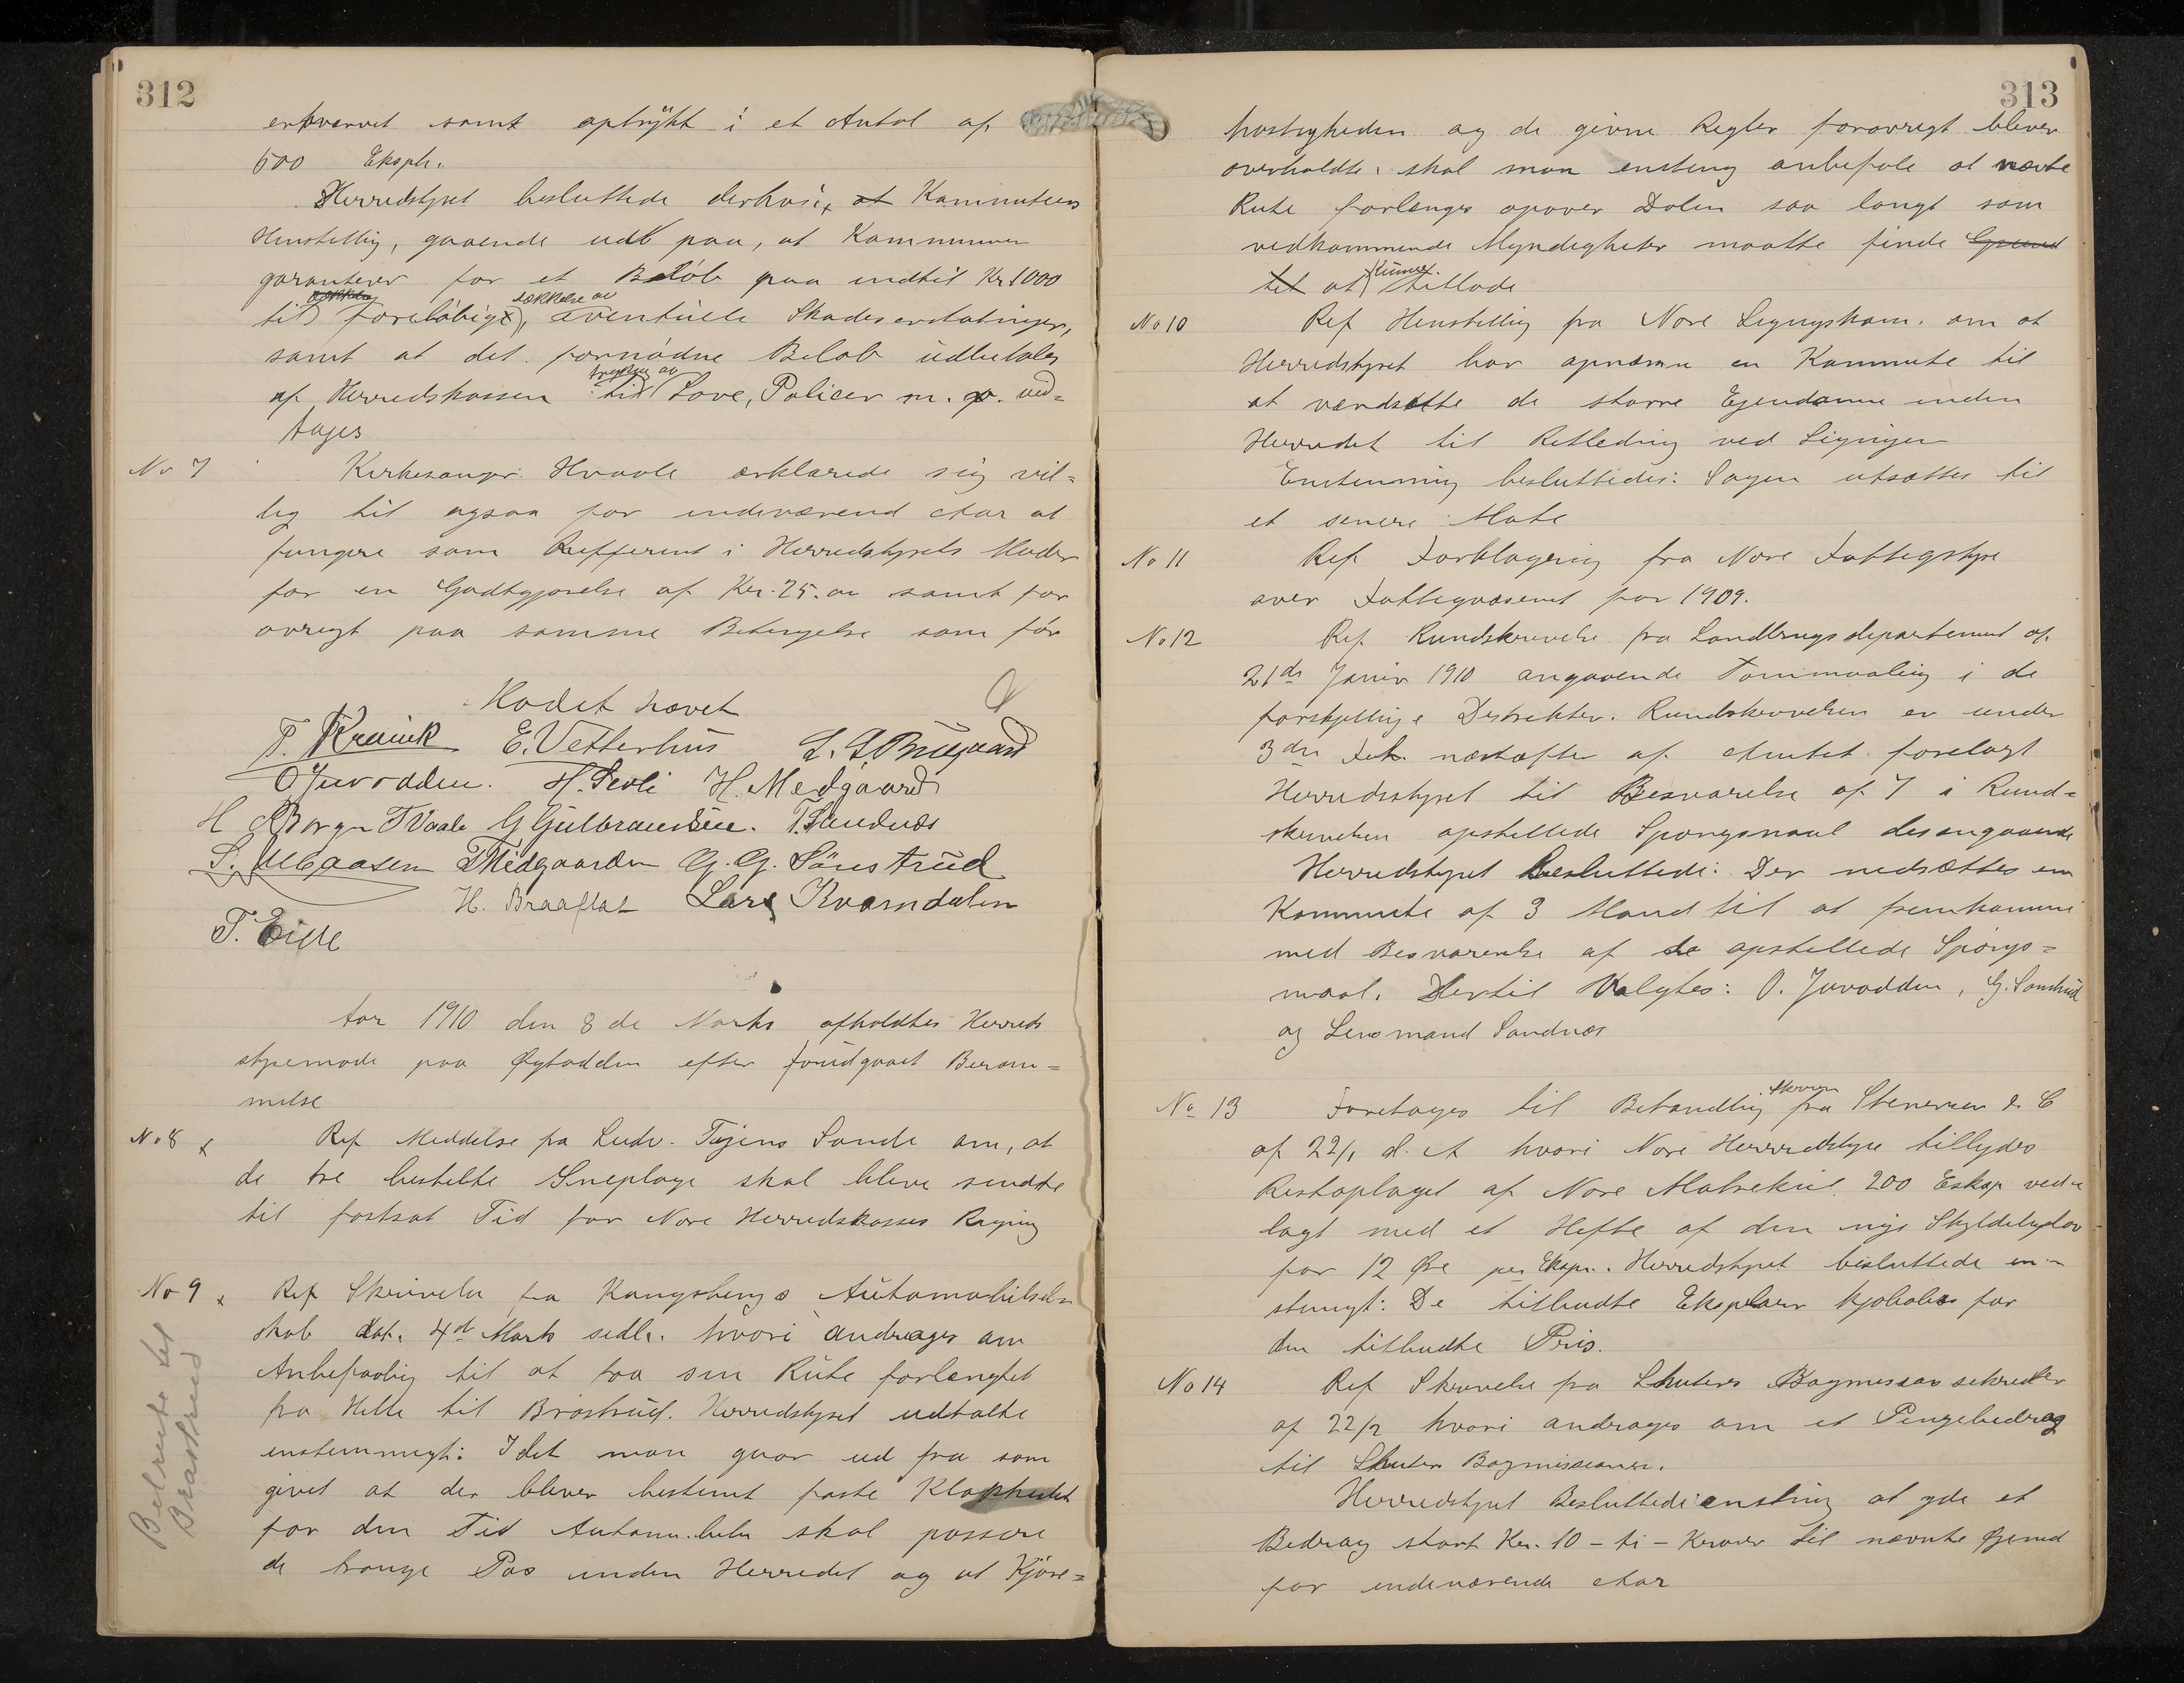 312
erhvervet samt optrykt i et Antal af
600 Expl.
Herredstyret besluttede derhos, at Kommuteens
Henstilling, gaaende ud paa, at Kommunen
garanterer for et Beløb paa indtil Kr 1000
dækkelse av
til foreløbige, eventuelle Skadeserstatninger,
samt at det fornødne Beløb udbetales
trykning av
af Herredskassen til Love, Policer m. v. ved=
tages
No 7 Kirkesanger Hvaale erklærede sig vil=
lig til ogsaa for indeværend Aar at
fungere som Refferent i Herredstyrets Møder
for en Godtgjørelse af Kr. 25.00 samt for
øvrigt paa samme Betingelse som før
Mødet hævet
T. Kravik E. Vetterhus
O Juvodden. H. Sevli H. Medgaard
H Borge T Vaale G Gulbrandsen. T. Sandnæs
T Medgaarden G. G. Sønstrud
H. Braaflat Lars Kvarndalen
T. Eide
Aar 1910 den 8 de Marts afholdtes Herreds
styremøde paa Øygladden efter forudgaaet Beram=
melse
No 8 x Ref Meddelse fra Ludv. Tajens Sønde om, at
de tre bestelte Sneploge skal bleve sendte
til fastsat Tid for Nore Herredskasses Regning
No 9 x Ref Skrivelse fra Kongsbergs Automobilsel=
skab dat. 4d Marts sedl. hvori andrages om
Anbefaling til at faa sin Rute forlænget
fra Helle til Brøstrud. Herredstyret udtalte
enstemmigt: Idet man gaar ud fra som
givet at der bliver bestemt faste Klokkeslet
for den Tid Automobilen skal passere
de trange Pas inden Herredet og at Kjøre=
Bilrute til
Brøstrud
313
hastigheden og de givne Regler forøvrigt bliver
overholdte, skal man enstemig anbefale at nævte
Rute forlænges opover Dalen saa langt som
vedkommende Myndigheter maatte finde Grund
kunne
til at tillade
No 10 Ref Henstilling fra Nore Ligningskom. om at
Herredstyret bør opnævne en Kommite til
at værdsætte de større Ejendomme inden
Herredet til Retleding ved Ligningen
Enstemmig besluttedes: Sagen utsættes til
et senere Møte
No 11 Ref Forklaging fra Nore Fattigstyre
over Fattigvæsenet for 1909.
No 12 Ref Rundskrivelse fra Landbrugsdepartement af
21de Janir 1910 angaaende Tømmmaaling i de
forskjellige Destrikter. Rundskrivelsen er under
3die Feb. næstefter af Amtet forelagt
Herredsstyret til Besvarelse af 7 i Rund=
skrivelsen opstillede Spørgsmaal desangaaende
Herredstyret besluttede: Der nedsættes en
Kommite af 3 Mand til at fremkomme
med Besvarelse af de opstillede Spørgs=
maal. Hertil valgtes: O. Juvodden, G. Sønstrud
og Lensmand Sandnæs
Skrivn
No 13 Foretages til Behandling fra Stenersen & C
af 22/1 d. A hvori Nore Herredstyre tilbydes
Restoplaget af Nore Matrekul 200 Exkp ved=
lagt med et Hefte af den nye Skyldeleydov
for 12 Øre per Expr. Herredstyret besluttede en=
stemgt: De tilbudte Eksplarer kjøbes for
den tilbudte Pris.
No 14 Ref Skrivelse fra Skuters Bogmissions sekretær
af 22/2 hvori andrages om et Pengebedrag
til Skuters Bogmissionen.
Herredstyret Besluttede ensting at yde et
Bedrag stort Kr. 10 - ti - Kroner til nævnte Øiemed
for indeværende Aar